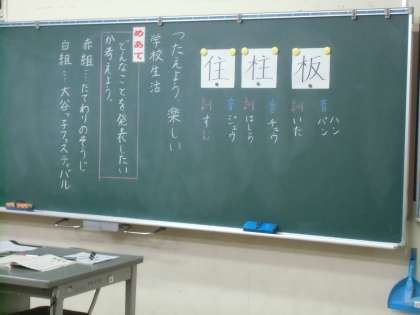 板
音 ハン
バン
訓 いた
柱
音 チュウ
訓 はしら
住
音 ジュウ
訓 すむ
つたえよう 楽しい
学校生活
めあて
どんなことを発表したい
か考えよう。
赤組…たてわりのそうじ
白組…大谷っ子フェスティバル